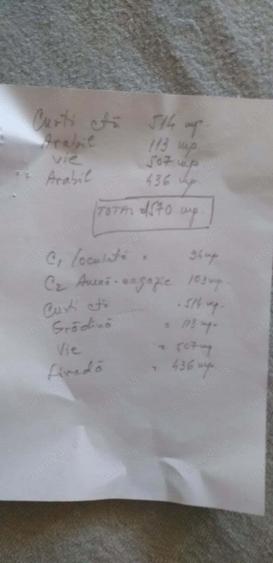 Curti ctii 514 mp
Arabil 113 mp
Vie 507 mp
Arabil 436 mp
TOTAL 1570 mp.
C1 locuintă = 94 mp
C2 Anexă-magazie 103 mp.
Curti ctii = 514 mp.
Grădină = 113 mp
Vie = 507 mp
Livadă = 436 mp.